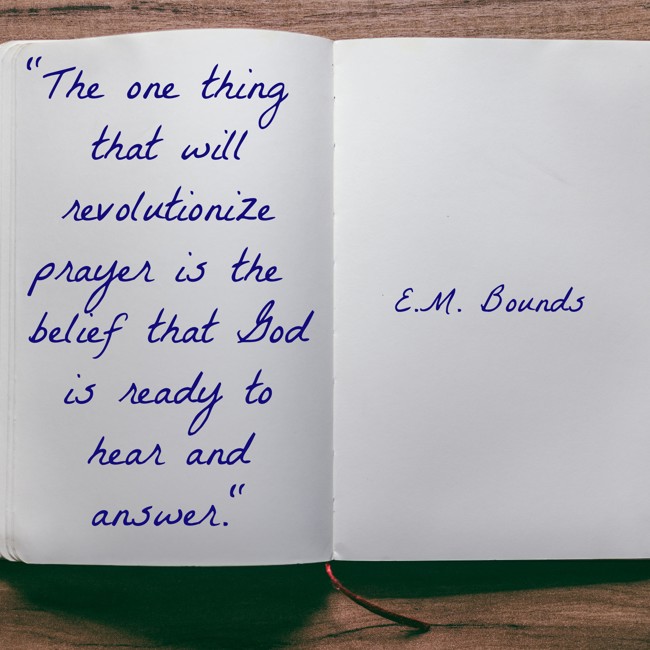 “The one thing
that will
revolutionize
prayer is the
belief that God
is ready to
hear and
answer.“
E.M. Bounds